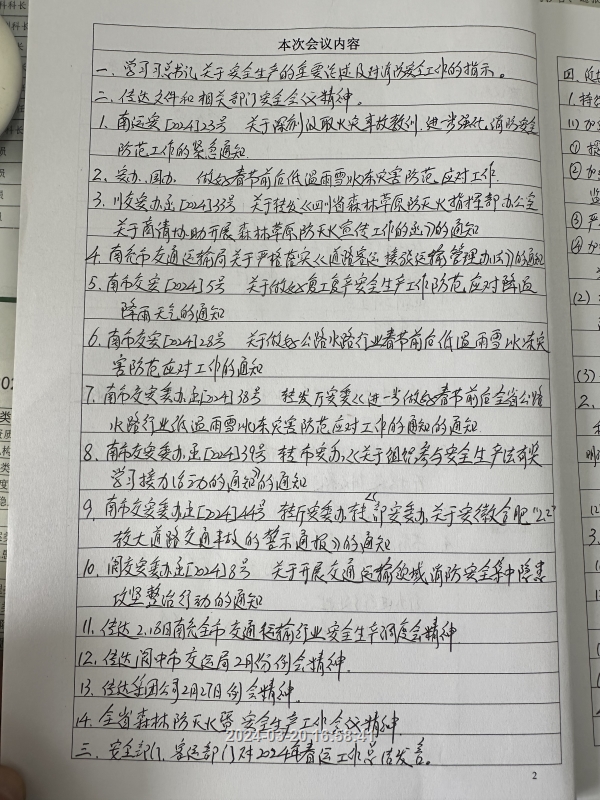 本次会议内容
一、学习习总书记关于安全生产的重要论述及对消防安全工作的指示。
二、传达文件和相关部门安全会议精神。
1、南运安[2024]23号 关于深刻汲取火灾事故教训,进一步强化消防安全
防范工作的紧急通知
2、安办、国办 做好春节前后低温雨雪冰冻灾害防范应对工作
3、川交安办函[2024]33号 关于转发《四川省森林草原防灭火指挥部办公室
关于商请协助开展森林草原防灭火宣传工作的函》的通知
4、南充市交通运输局关于严格落实《道路客运接驳运输管理办法》的通知
5、南市交安[2024]5号 关于做好复工复产安全生产工作防范应对降温
降雨天气的通知
6、南市交安[2024]28号 关于做好公路水路行业春节前后低温雨雪冰冻灾
害防范应对工作的通知
7、南市交安委办函[2024]38号 转发厅安委《进一步做好春节前后全省公路
水路行业低温雨雪冰冻灾害防范应对工作的通知的通知
8、南市交安委办函[2024]39号 转市安办《关于组织参与安全生产法有奖
学习接力活动的通知》的通知
9、南市交安委办函[2024]44号 转厅安委办转《部安委办关于安徽合肥“2.2”
较大道路交通事故的警示通报》的通知
10、阆交安委办函[2024]8号 关于开展交通运输领域消防安全集中隐患
攻坚整治行动的通知
11、传达2.18日南充全市交通运输行业安全生产调度会精神
12、传达阆中市交运局2月份例会精神.
13、传达集团公司2月27日例会精神.
14、全省森林防灭火暨安全生产工作会议精神
三、安全部门、客运部门对2024年春运工作总结发言。
2024-03-20 16:58:4
2
科科长
四、
1、
①
②
③
④
(2)
(3)
2、
3、